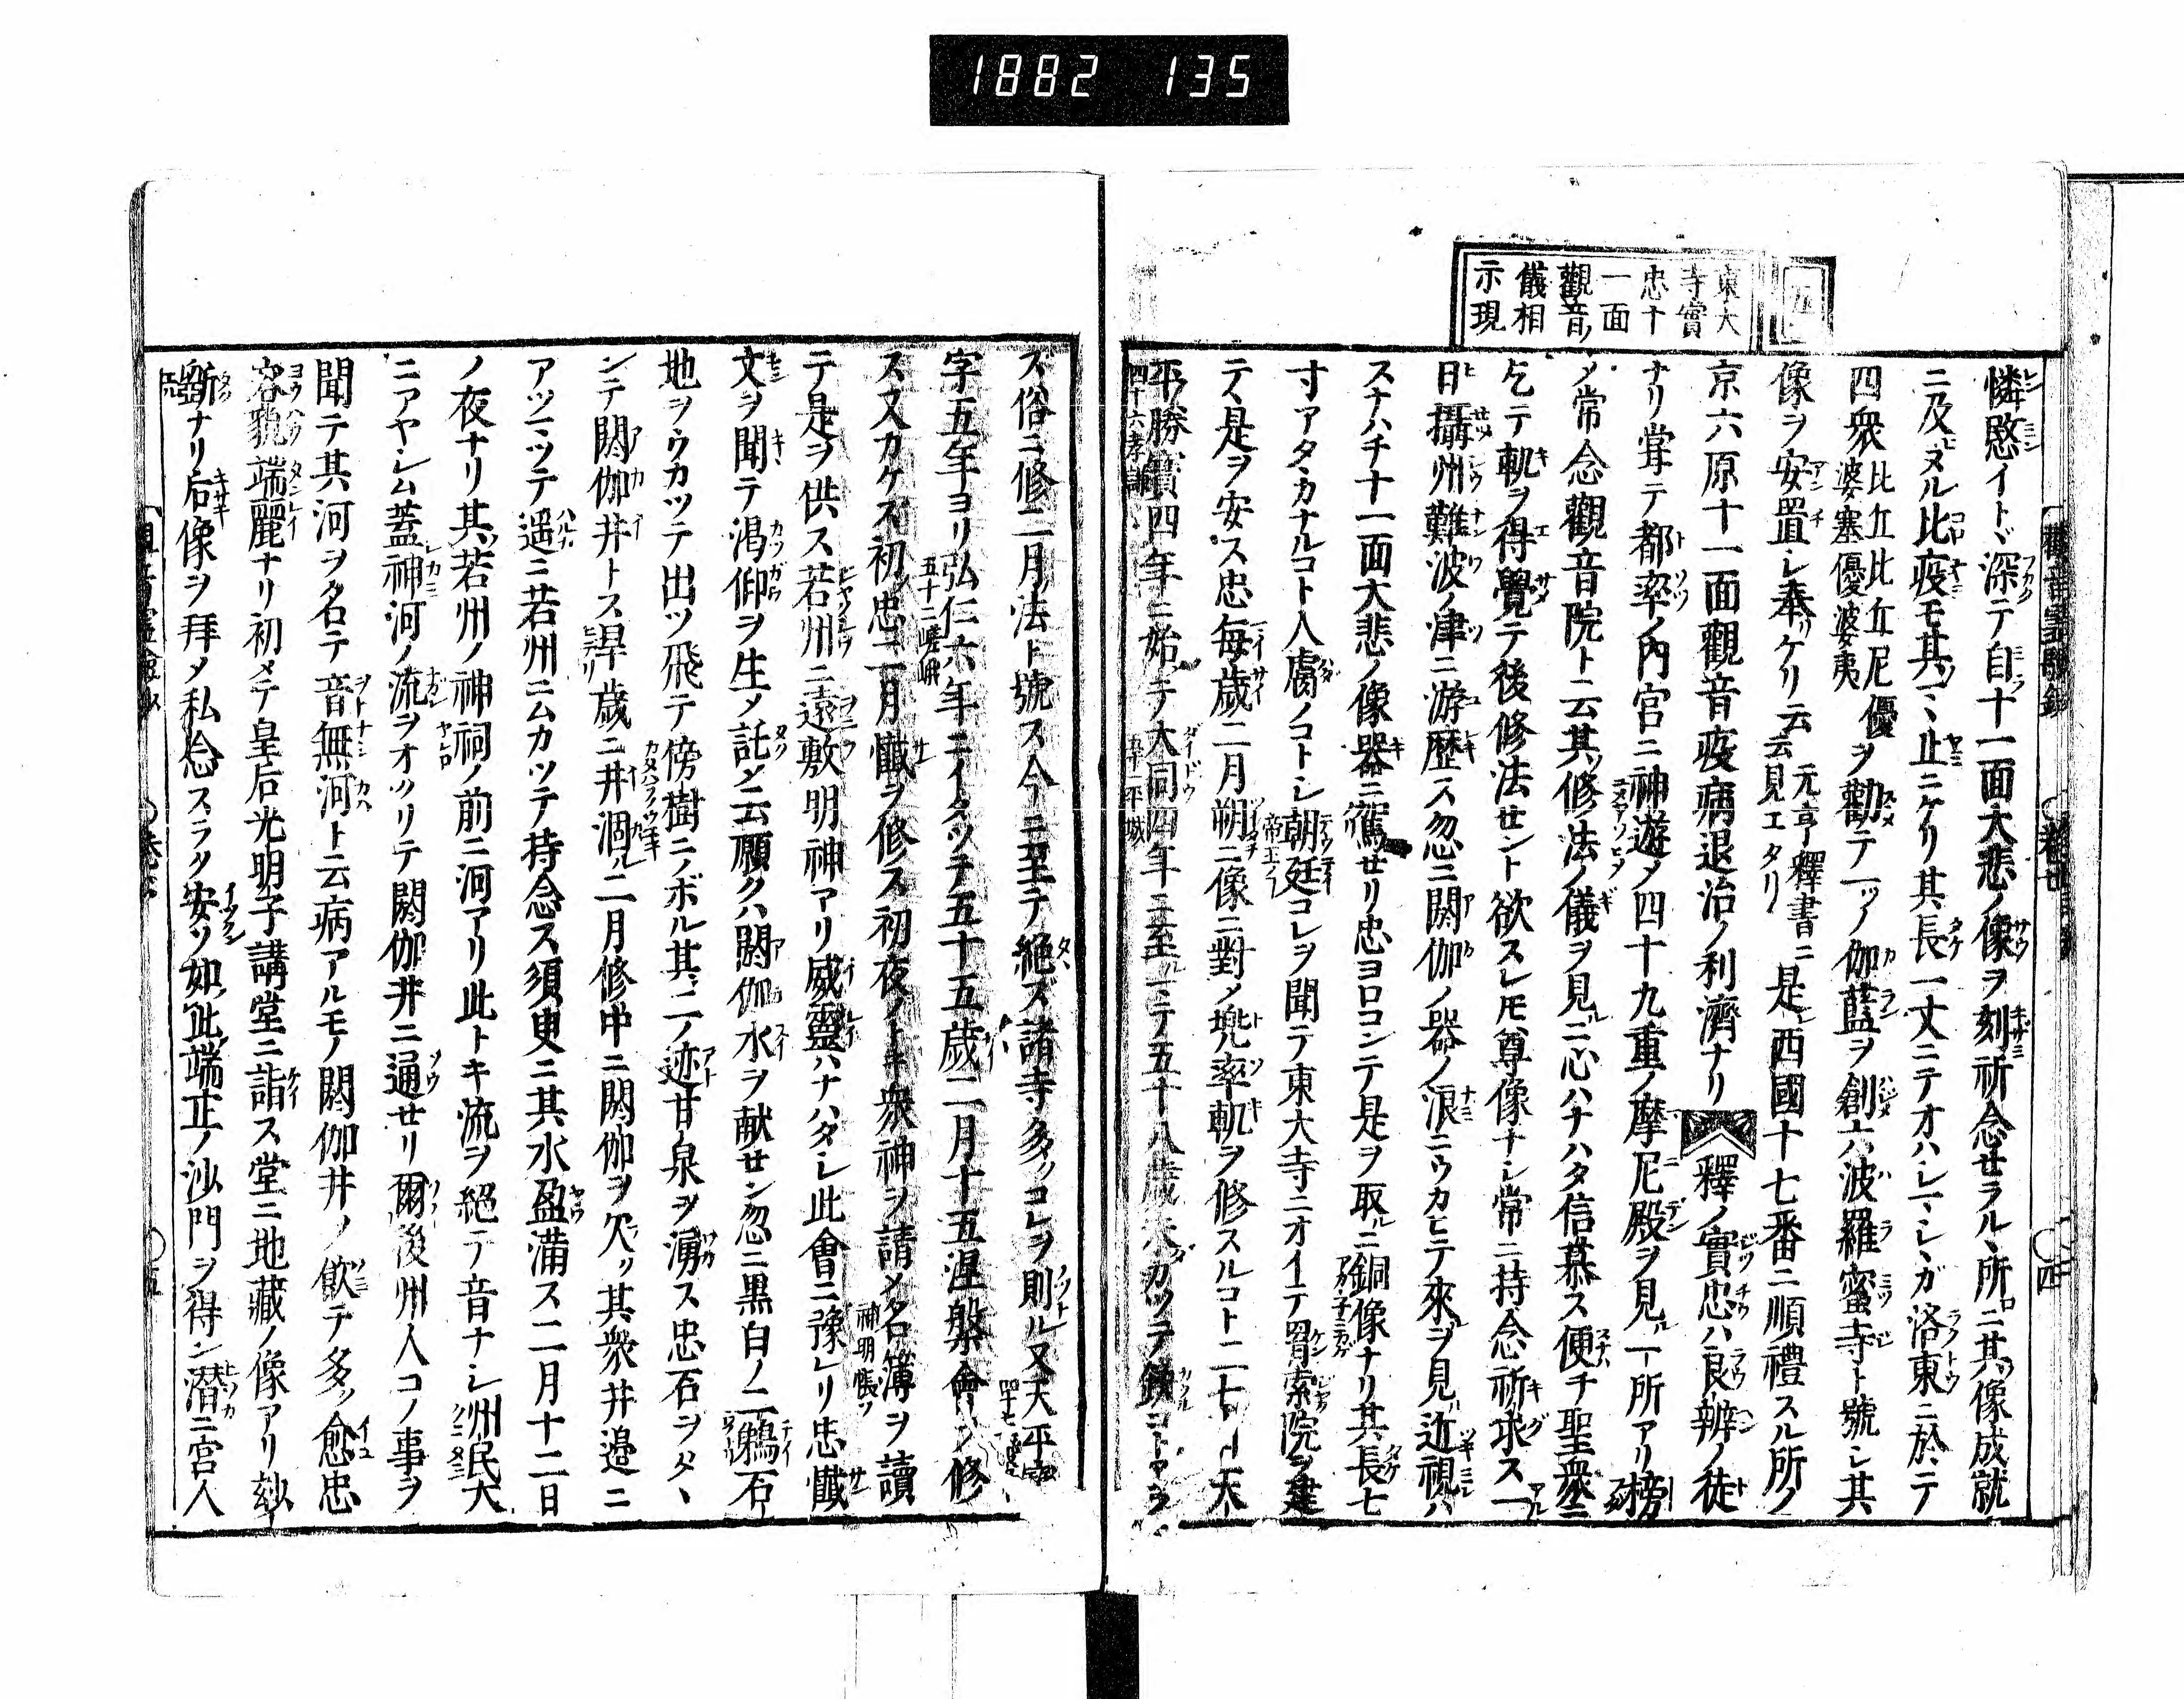 1882 135
五
東大
寺實
忠十
一面
觀音ノ
儀相
示現
憐愍イトヾ深テ自十一面大悲ノ像ヲ刻祈念セラルヽ所ニ其像成就
ニ及ヌル比疫モ其マヽ止ニケリ其長一丈ニテオハシマシヽガ洛東ニ於テ
四衆比丘比丘尼優婆塞優婆夷ヲ勸テ一ツノ伽藍ヲ創六波羅蜜寺ト號シ其
像ヲ安置シ奉ツケリ云云元亨釋書ニ見エタリ是西國十七番ニ順禮スル所ノ
京六原十一面觀音疫病退治ノ利濟ナリ 釋ノ實忠ハ良辨ノ徒
ナリ甞テ都率ノ內宮ニ神遊メ四十九重ノ摩尼殿ヲ見ル一所アリ榜
メ常念觀音院ト云其修法ノ儀ヲ見ルニ心ハナハタ信慕ス便チ聖衆ニ
乞テ軌ヲ得覺テ後修法セント欲スレモ尊像ナシ常ニ持念祈求ス一
日攝州難波ノ津ニ游歷ス忽ニ閼伽ノ器ノ浪ニウカヒテ來ルヲ見ル近視ハ
スナハチ十一面大悲ノ像器ニ駕セリ忠ヨロコンテ是ヲ取ルニ銅像ナリ其長七
寸アタヽカナルコト人膚ノコトシ朝廷コレヲ聞テ東大寺ニオイテ羂索院ヲ建
テヽ是ヲ安ス忠每歲二月朔ニ像ニ對メ兜率軌ヲ修スルコト二七日天
平勝寶四年ニ始テ大同四年ニ至ルマテ五十八歲未タカツテ缺コトアラ
ス俗ニ修二月法ト號ス今ニ至テ絕ズ諸寺多クコレヲ則ル又天平寶
字五年ヨリ弘仁六年ニイタツテ五十五歲二月十五涅槃會ヲ修
ス又カケス初メ忠二月懺ヲ修ス初夜ノトキ衆神ヲ請メ名簿ヲ讀
テ是ヲ供ス若州ニ遠敷明神アリ威靈ハナハタシ此會ニ豫レリ忠懺
文ヲ聞テ渴仰ヲ生メ託メ云願クハ閼伽水ヲ献セン忽ニ黒白ノ二鵜石
地ヲウカツテ出ツ飛テ傍樹ニノボル其二ノ迹甘泉ヲ湧ス忠石ヲタヽ
ンテ閼伽井トス旱歲ニ井涸ル二月修中ニ閼伽ヲ欠ク其衆井邉ニ
アツマツテ遥ニ若州ニムカツテ持念ス須臾ニ其水盈滿ス二月十二日
ノ夜ナリ其若州ノ神祠ノ前ニ河アリ此トキ流ヲ絕テ音ナシ州民大
ニアヤシム蓋神河ノ流ヲオクリテ閼伽井ニ通セリ爾後州人コノ事ヲ
聞テ其河ヲ名テ音無河ト云病アルモノ閼伽井ノ飮テ多ク愈忠
容貌端麗ナリ初メテ皇后光明子講堂ニ詣ス堂ニ地藏ノ像アリ玅
斲ナリ后像ヲ拜メ私念スラク安ソ如此端正ノ沙門ヲ得ン潜ニ宮人